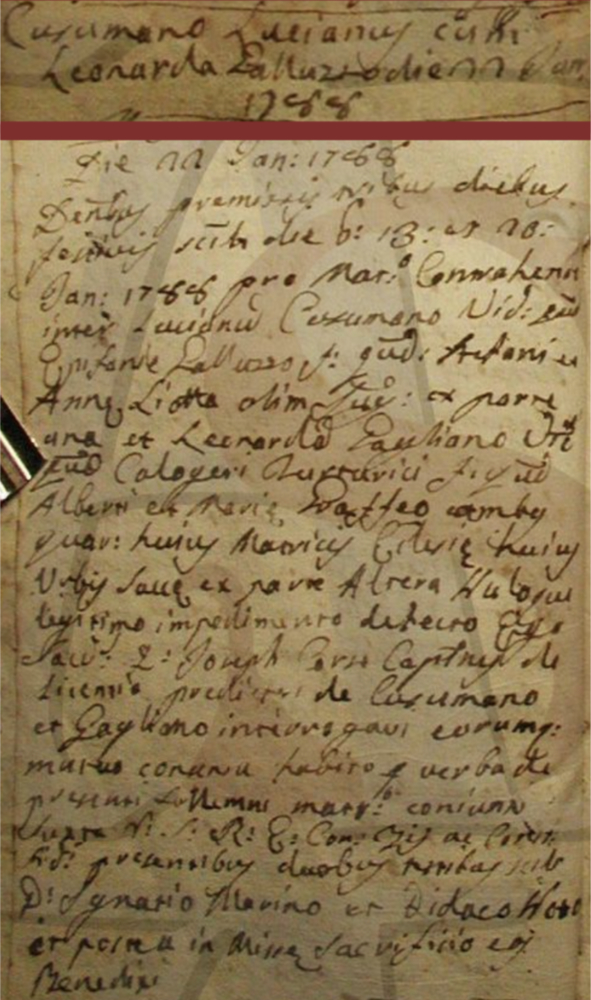 Cusumano Lucianus cum
Leonarda Galluzzo die 22 Jan.
1788
Die 22 Jan: 1788
premissis tribus diebus
festivis scilt die 6: 13: et 20:
Jan: 1788 pro Matr:o Contrahend
inter Lucianū Cusumano Vid:
Epifanie Galluzzo f: qud: Stefani et
Anne Liotta olim Jug: ex parte
una et Leonardā Gagliano
Calogeri f: qud
Alberti et Marie Maffeo
huius Matricis Eclesie huius
Urbis Sacce ex parte Altera Nulloque
legitimo impedimento detecto Ego
Sac: D: Joseph Corso Captnus de
licentia predictos de Cusumano
et Gagliano interrogavi eorumq:
mutuo consensu habito p verba de
presenti sollemni matr:o coniunxi
Juxta R: S: R: E: Con:
presentibus duobus testibus scilt
D: Ignatio Marino et Didaco
et postea in Misse sacrificio eos
Benedixi